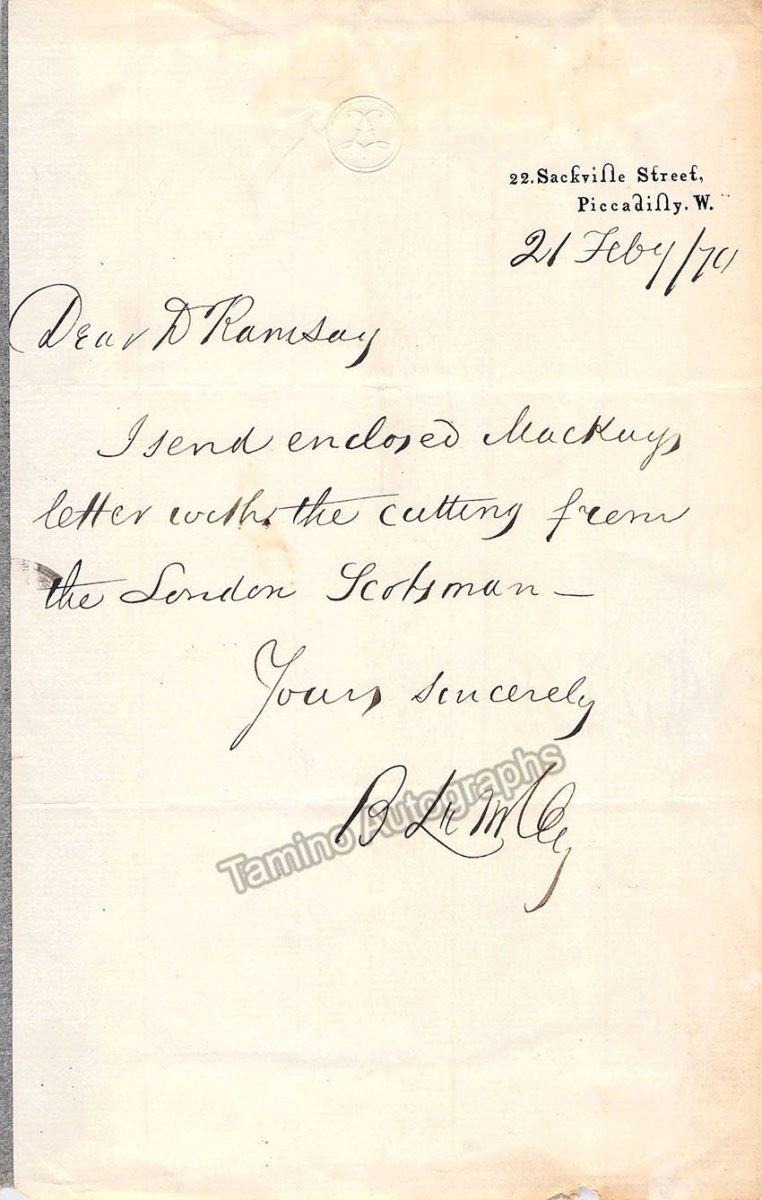 22. Sackville Street,
Piccadilly. W.
21 Feby/70
Dear D Ramsay
I send enclosed Mackays
letter with the cutting from
the London Scotsman —
Yours sincerely
B
Tamino Autographs